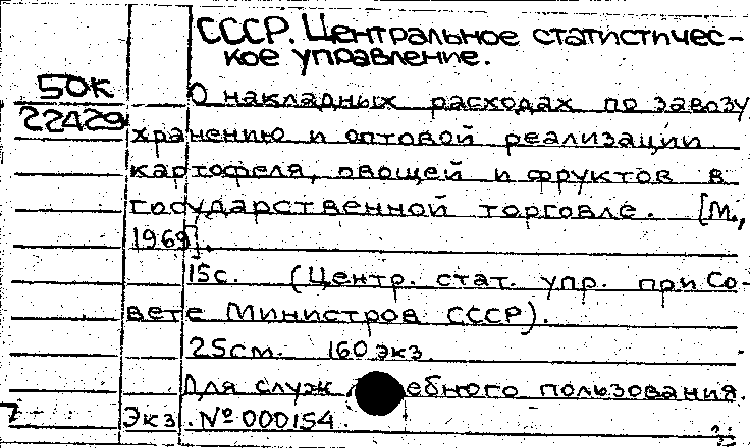 СССР. Центральное статистичес-
кое управление.
50К
22429
О накладных расходах по завозу
хранению и оптовой реализации
картофеля, овощей и фруктов в
государственной торговле. [М.,
1969].
15с. (Центр. стат. упр. при Со-
вете Министров СССР).
25см. 160 экз.
Для служебного пользования.
Экз. № 000154.